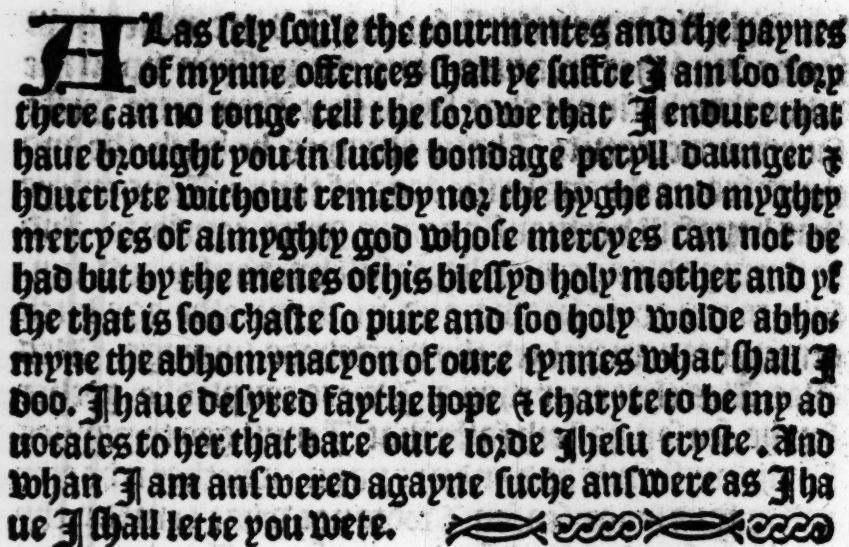 ALas sely soule the tourmentes and the paynes
of mynne offences shall ye suffre I am soo sory
there can no tonge tell the sorowe that I endure that
haue brought you in suche bondage peryll daunger &
hduersyte without remedy nor the hyghe and myghty
mercyes of almyghty god whose mercyes can not be
had but by the menes of his blessyd holy mother and yf
she that is soo chaste so pure and soo holy wolde abho-
myne the abhomynacyon of oure synnes what shall I
doo. I haue desyred faythe hope & charyte to be my ad
uocates to her that bare oure lorde Jhesu cryste. And
whan I am answered agayne suche answere as I ha
ue I shall lette you wete.